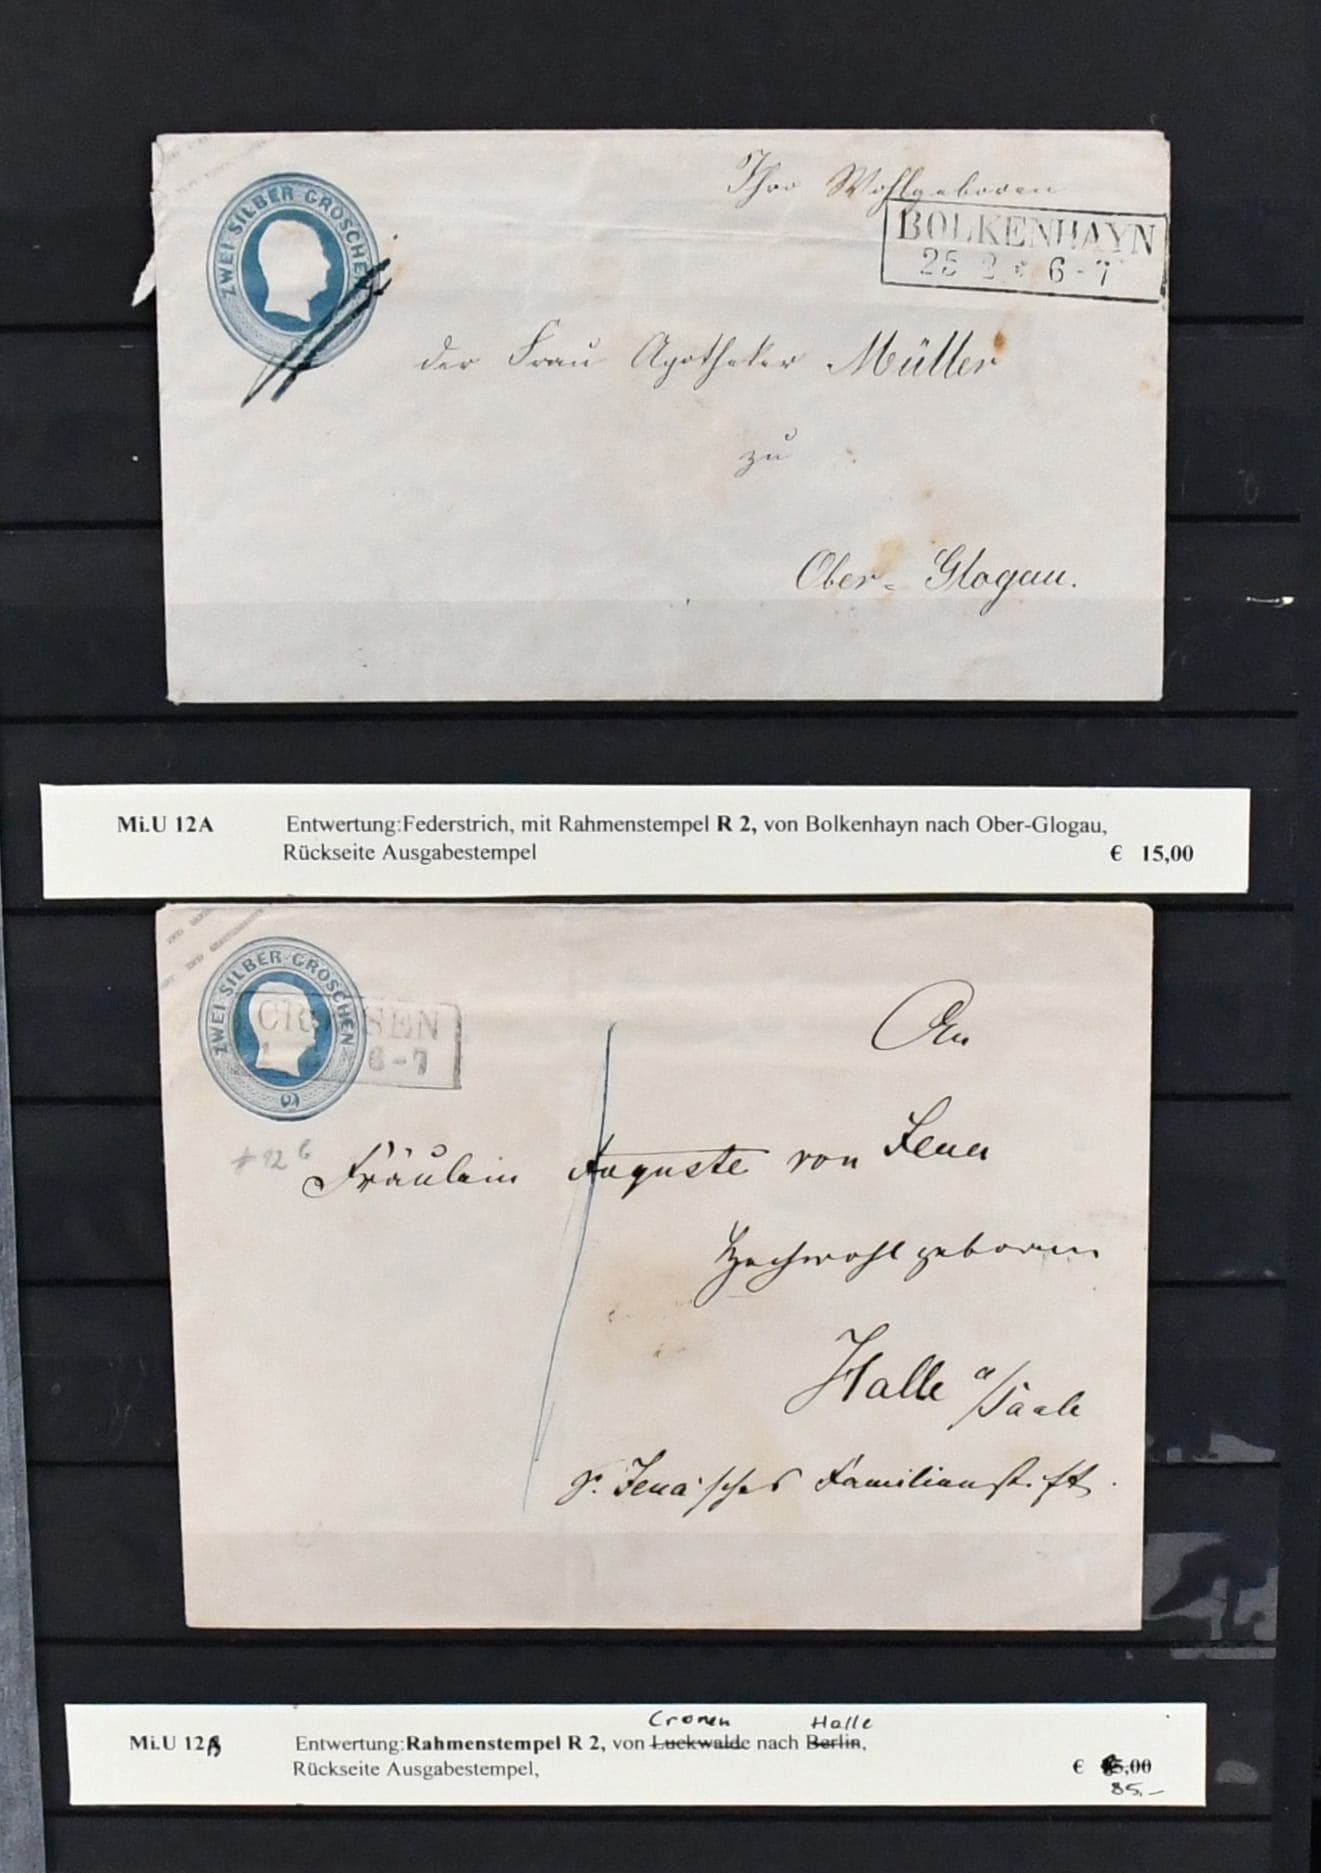 ZWEI SILBER GROSCHEN
Ihro Wohlgeboren
BOLKENHAYN
25 2 * 6-7
der Frau Apotheker Müller
zu
Ober-Glogau.
Mi.U 12A Entwertung:Federstrich, mit Rahmenstempel R 2, von Bolkenhayn nach Ober-Glogau,
Rückseite Ausgabestempel € 15,00
ZWEI SILBER GROSCHEN
2
CROSSEN
6-7
An
Fräulein Auguste von Jena
Hochwohlgeboren
Halle a/Saale
v. Jena'sches Familienstift.
Cronen Halle
Mi.U 12B Entwertung:Rahmenstempel R 2, von Luckwalde nach Berlin,
Rückseite Ausgabestempel, € 5,00
85,-